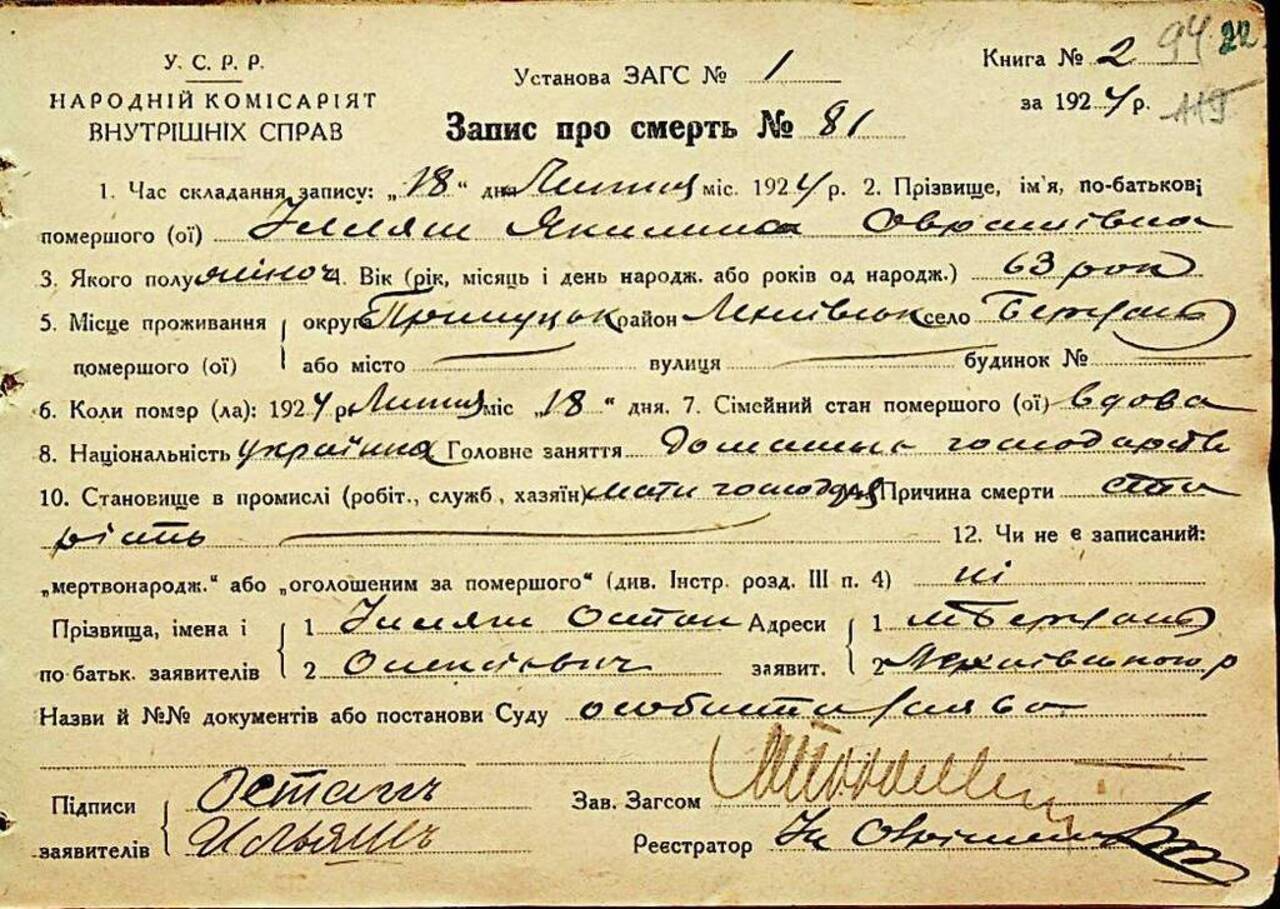 У. С. Р. Р.
НАРОДНІЙ КОМІСАРІЯТ
ВНУТРІШНІХ СПРАВ
Установа ЗАГС № 1
Книга № 2 94 22
за 1924 р. 119
Запис про смерть № 81
1. Час складання запису: „18“ дня Липня міс. 1924 р. 2. Прізвище, ім'я, по-батькові
помершого (ої) Ілляш Якилина Овраміівна
3. Якого полу жіноч 4. Вік (рік, місяць і день народж. або років од народж.) 63 рок
5. Місце проживання помершого (ої) округ Прилуцьк район село
або місто вулиця будинок №
6. Коли помер (ла): 1924 р Липня міс „18“ дня. 7. Сімейний стан помершого (ої) вдова
8. Національність українка Головне заняття домашнє господарств
10. Становище в промислі (робіт., служб, хазяїн) мати господаря Причина смерти ста
рість 12. Чи не є записаний:
„мертвонародж.“ або „оголошеним за помершого“ (див. Інстр. розд. III п. 4) ні
Прізвища, імена і по-батьк. заявителів 1 Ілляш Остап
2 Олексієвич
Адреси заявит. 1
2
Назви й №№ документів або постанови Суду особиста заява
Підписи заявителів Остапъ
Ильяшъ
Зав. Загсом
Реєстратор